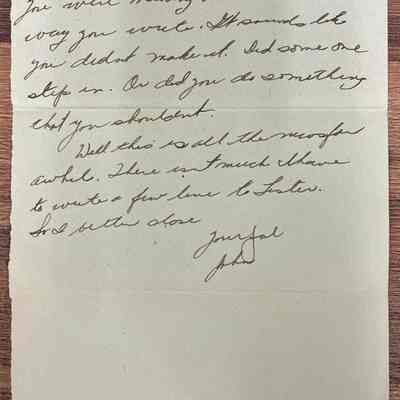 You were
way you write. It sounds like
you didnt make it. Did some one
step in. Or did you do something
that you shouldent.
Well this is all the news for
awhile. There isn't much I have
to write a few line to Lester.
So I better close
Your Pal
John